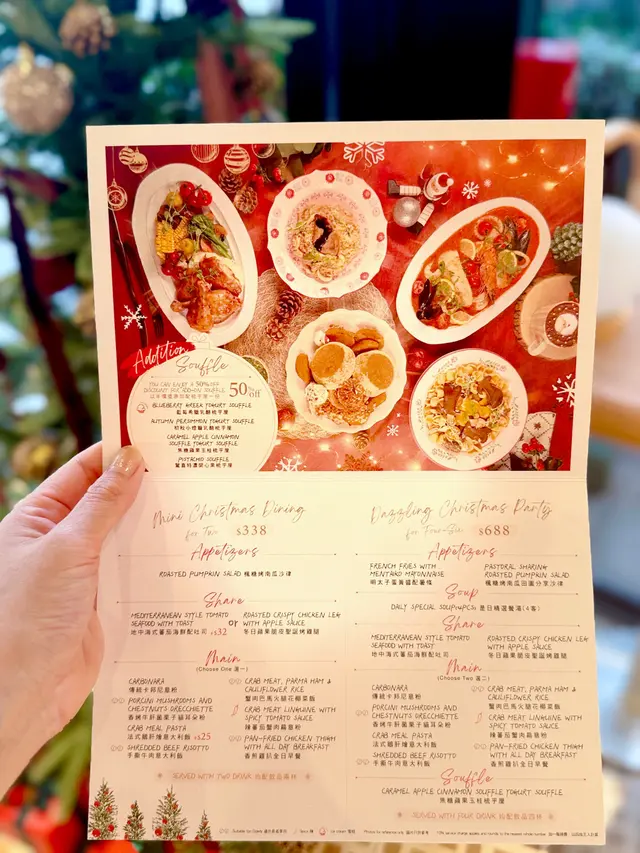 Addition
Souffle
YOU CAN ENJOY A 50% OFF
DISCOUNT FOR ADD-ON SOUFFLE
50% off
BLUEBERRY GREEK YOGURT SOUFFLE
AUTUMN PERSIMMON YOGURT SOUFFLE
CARAMEL APPLE CINNAMON
SOUFFLE YOGURT SOUFFLE
焦糖蘋果玉桂梳乎厘
PISTACHIO SOUFFLE
Mini Christmas Dining
for Two $338
Appetizers
ROASTED PUMPKIN SALAD 楓糖烤南瓜沙律
Share
MEDITERRANEAN STYLE TOMATO
SEAFOOD WITH TOAST
地中海式蕃茄海鮮配吐司 +$32
or
ROASTED CRISPY CHICKEN LEG
WITH APPLE SAUCE
冬日蘋果脆皮聖誕烤雞腿
Main
(Choose One 選一)
CARBONARA
傳統卡邦尼意粉
PORCINI MUSHROOMS AND
CHESTNUTS ORECCHETTE
香烤牛肝菌栗子貓耳朵粉
CRAB MEAL PASTA
+$25
SHREDDED BEEF RISOTTO
手撕牛肉意大利飯
CRAB MEAT, PARMA HAM &
CAULIFLOWER RICE
蟹肉巴馬火腿花椰菜飯
CRAB MEAT LINGUINE WITH
SPICY TOMATO SAUCE
辣蕃茄蟹肉扁意粉
PAN-FRIED CHICKEN THIGH
WITH ALL DAY BREAKFAST
香煎雞扒全日早餐
SERVED WITH TWO DRINK 粉配飲品兩杯
Dazzling Christmas Party
for Four-Six $688
Appetizers
FRENCH FRIES WITH
MENTAIKO MAYONNAISE
明太子蛋黃醬配薯條
PASTORAL SHARING
ROASTED PUMPKIN SALAD
楓糖烤南瓜田園分享沙律
Soup
DAILY SPECIAL SOUP(4PCS) 是日精選餐湯(4客)
Share
MEDITERRANEAN STYLE TOMATO
SEAFOOD WITH TOAST
地中海式蕃茄海鮮配吐司
ROASTED CRISPY CHICKEN LEG
WITH APPLE SAUCE
冬日蘋果脆皮聖誕烤雞腿
Main
(Choose Two 選二)
CARBONARA
傳統卡邦尼意粉
PORCINI MUSHROOMS AND
CHESTNUTS ORECCHETTE
香烤牛肝菌栗子貓耳朵粉
CRAB MEAL PASTA
SHREDDED BEEF RISOTTO
手撕牛肉意大利飯
CRAB MEAT, PARMA HAM &
CAULIFLOWER RICE
蟹肉巴馬火腿花椰菜飯
CRAB MEAT LINGUINE WITH
SPICY TOMATO SAUCE
辣蕃茄蟹肉扁意粉
PAN-FRIED CHICKEN THIGH
WITH ALL DAY BREAKFAST
香煎雞扒全日早餐
Souffle
CARAMEL APPLE CINNAMON SOUFFLE YOGURT SOUFFLE
焦糖蘋果玉桂梳乎厘
SERVED WITH FOUR DRINK 粉配飲品四杯